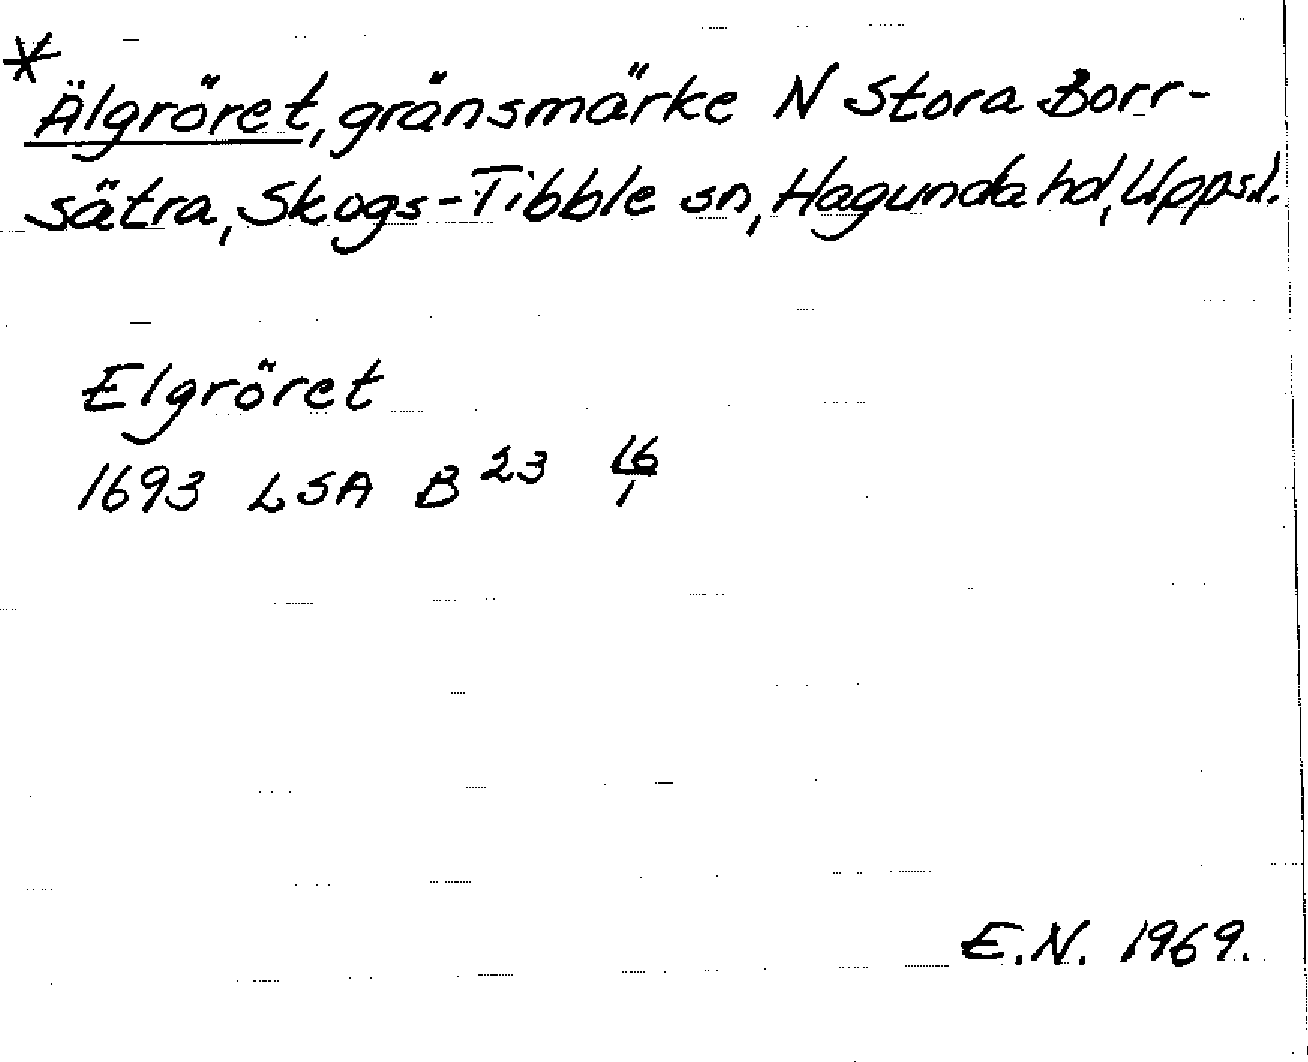 * Älgröret, gränsmärke N Stora Borr-
sätra, Skogs-Tibble sn, Hagunda hd, Uppsl.
Elgröret
1693 LSA B 23 16/1
E.N. 1969.